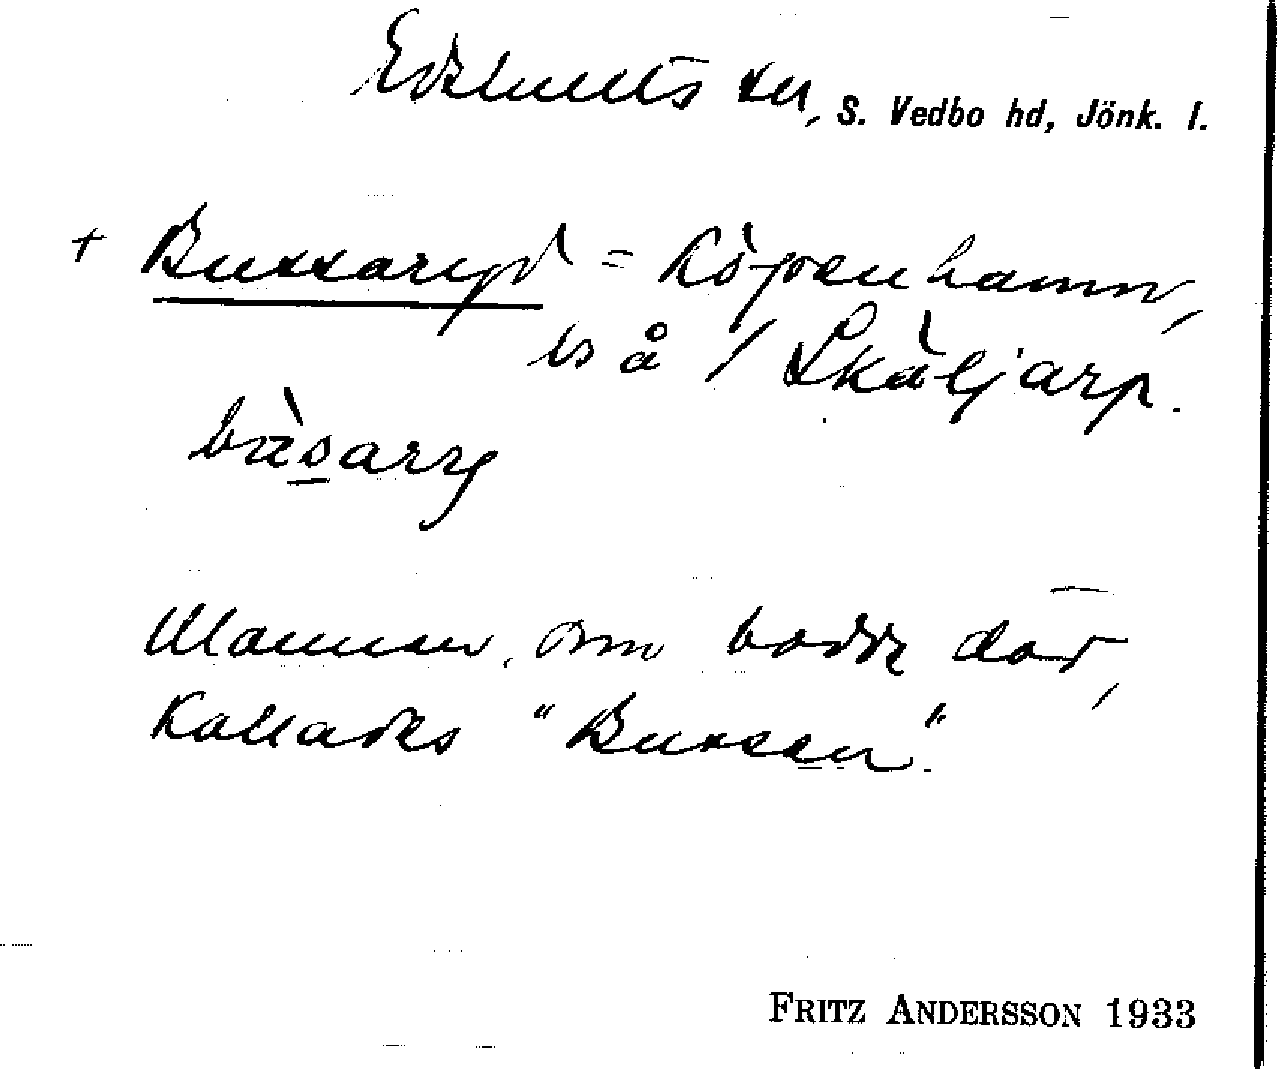 Edshults sn, S. Vedbo hd, Jönk. l.
+ Bussaryd = Köpenhamn,
bs å / Skäljarp.
bùsarry
Mannen, som bodde där,
kallades "Bussen".
FRITZ ANDERSSON 1933